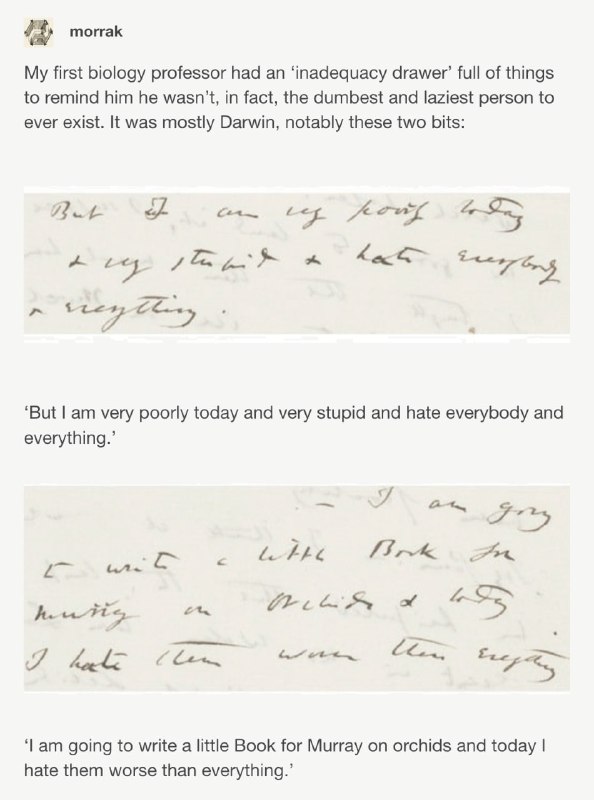 morrak
My first biology professor had an ‘inadequacy drawer’ full of things
to remind him he wasn’t, in fact, the dumbest and laziest person to
ever exist. It was mostly Darwin, notably these two bits:
But I am vy poorly today
& vy stupid & hate everybody
& everything.
‘But I am very poorly today and very stupid and hate everybody and
everything.’
I am going
to write a little Book for
Murray on orchids & today
I hate them worse than everything
‘I am going to write a little Book for Murray on orchids and today I
hate them worse than everything.’